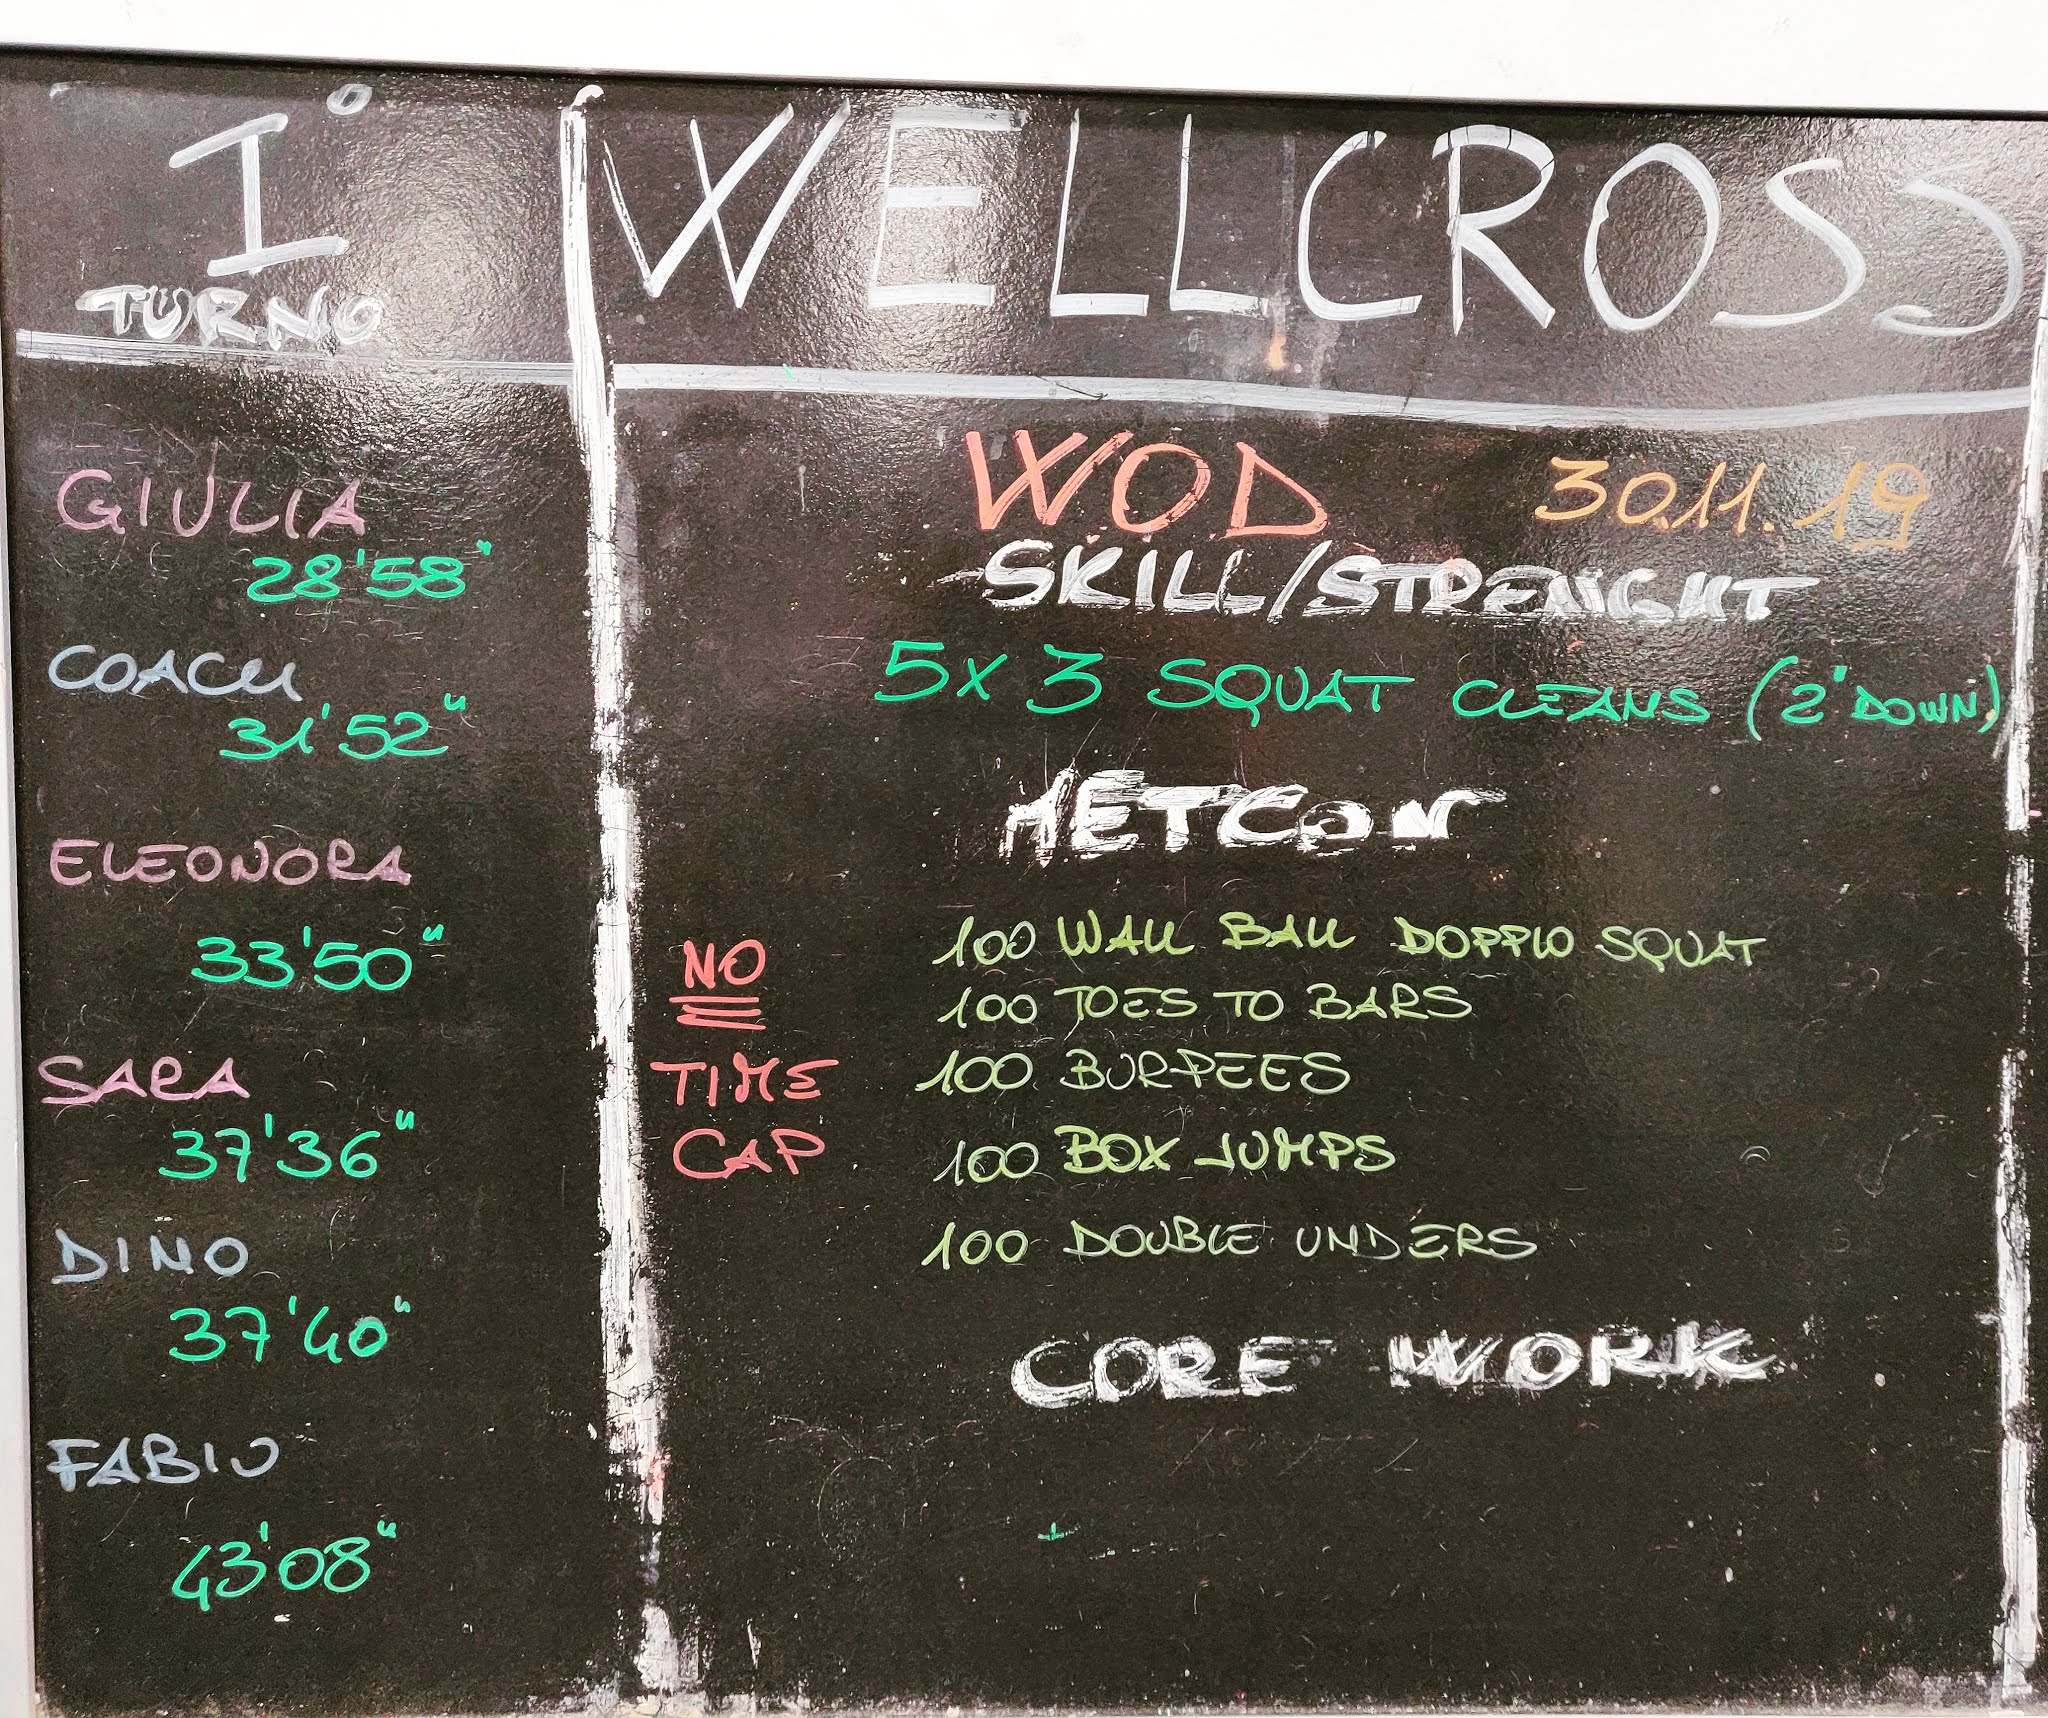 I°
TURNO
GIULIA
28'58"
COACH
31'52"
ELEONORA
33'50"
SARA
37'36"
DINO
37'40"
FABIO
43'08"
WELLCROSS
WOD 30.11.19
SKILL/STRENGHT
5x3 SQUAT CLEANS (2" DOWN)
METCON
NO
TIME
CAP
100 WALL BALL DOPPIO SQUAT
100 TOES TO BARS
100 BURPEES
100 BOX JUMPS
100 DOUBLE UNDERS
CORE WORK